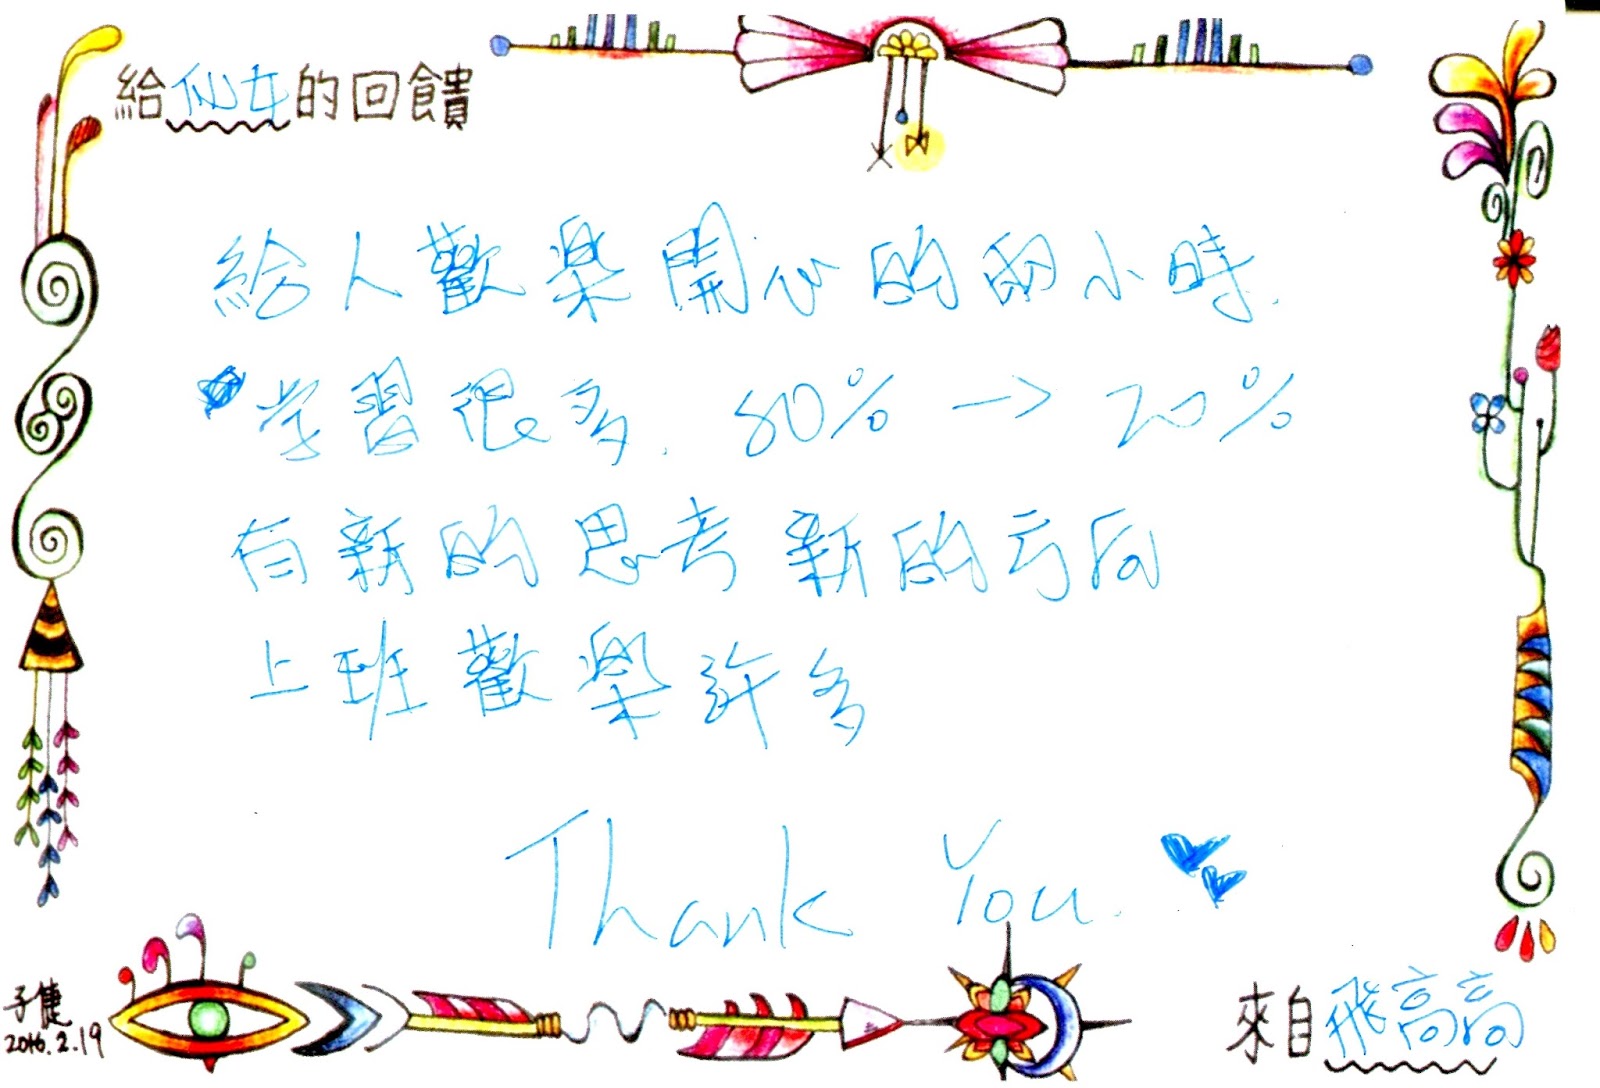 給仙女的回饋
給人歡樂開心的兩小時.
学習很多. 80% → 20%
有新的思考新的方向
上班歡樂許多
Thank You.
子健
2016.2.19
來自飛高高